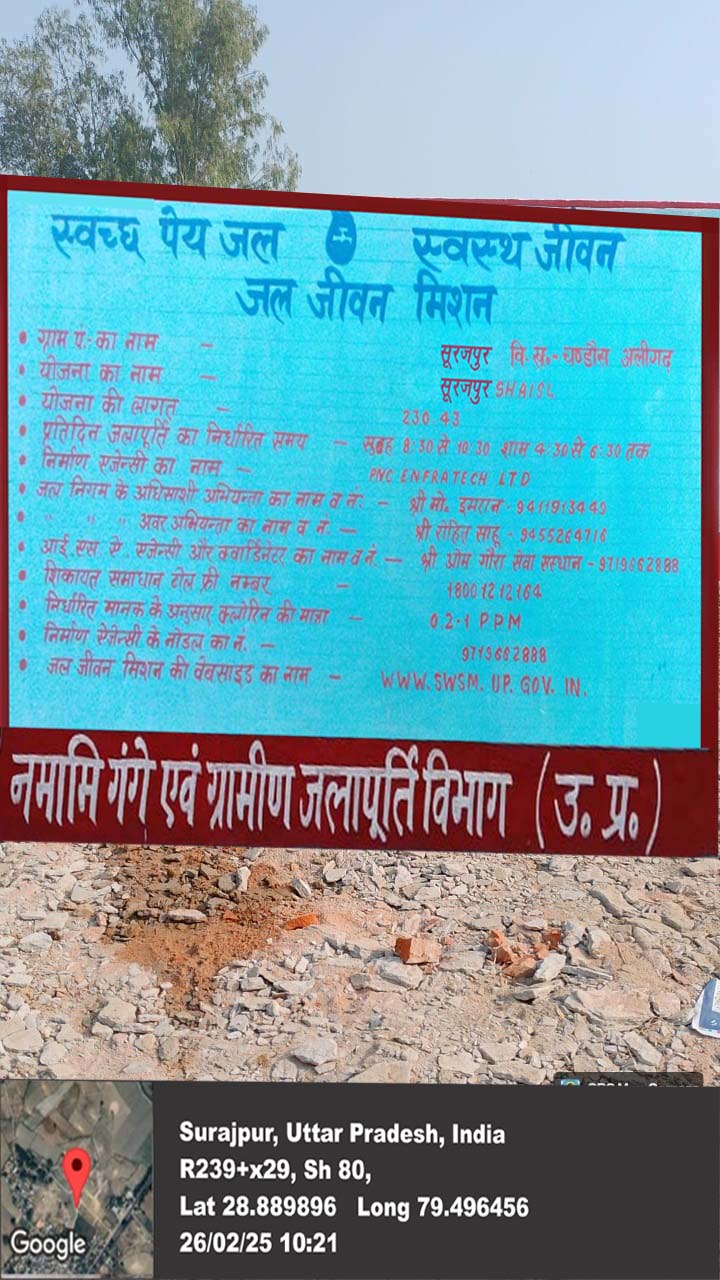 स्वच्छ पेय जल स्वस्थ जीवन
जल जीवन मिशन
• ग्राम पं.-का नाम – सूरजपुर वि.ख.-चण्डौस अलीगढ़
• योजना का नाम – सूरजपुर SHAISL
• योजना की लागत – 230 43
• प्रतिदिन जलापूर्ति का निर्धारित समय – सुबह 8:30 से 10:30 शाम 4:30 से 6:30 तक
• निर्माण एजेन्सी का नाम – PNC ENFRATECH LTD
• जल निगम के अधिसाशी अभियन्ता का नाम व नं. – श्री मो. इमरान - 9411913449
• " " " अवर अभियन्ता का नाम व नं. – श्री रोहित साहू - 9455264716
• आई.एस.ऐ. एजेन्सी और क्वार्डिनेटर का नाम व नं. – श्री ओम गौरा सेवा सस्थान - 9719662888
• शिकायत समाधान टोल फ्री नम्बर – 18001212164
• निर्धारित मानक के अनुसार क्लोरिन की मात्रा – 0.2-1 PPM
• निर्माण ऐजेन्सी के नोडल का नं. – 9719662888
• जल जीवन मिशन की वेबसाइड का नाम – WWW.SWSM.UP.GOV.IN.
नमामि गंगे एवं ग्रामीण जलापूर्ति विभाग (उ. प्र.)
Surajpur, Uttar Pradesh, India
R239+x29, Sh 80,
Lat 28.889896 Long 79.496456
26/02/25 10:21
Google